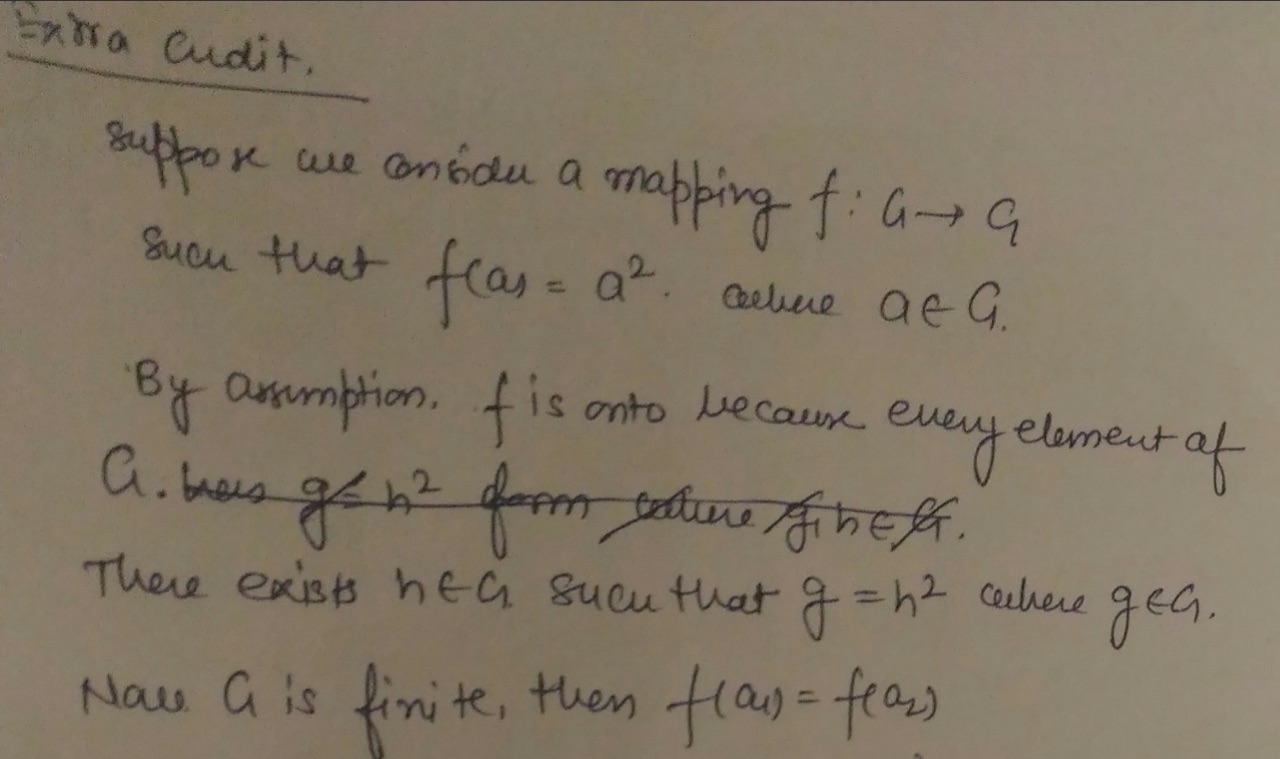 Extra Credit.
Suppose we consider a mapping f: G → G
Such that f(a) = a². where a ∈ G.
By assumption. f is onto because every element of
G. has g = h² form where g, h ∈ G.
There exists h ∈ G such that g = h² where g ∈ G.
Now G is finite, then f(a₁) = f(a₂)